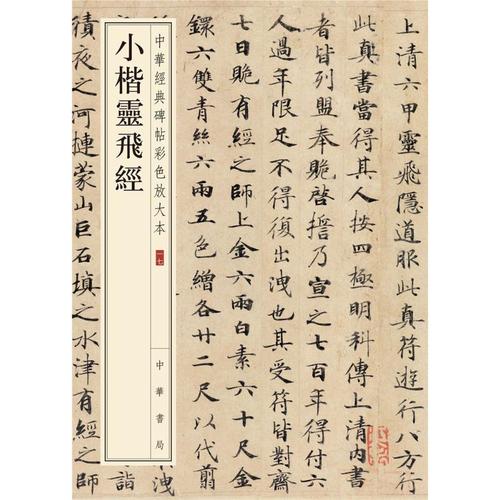 小楷靈飛經
中華經典碑帖彩色放大本
一七
中華書局
上清六甲靈飛隱道服此真符遊行八方行
此真書當得其人按四極明科傳上清內書
者皆列盟奉貺啓誓乃宣之七百年得付六
人過年限足不得復出洩也其受符皆對齋
七日貺有經之師上金六兩白素六十尺金
鐶六雙青絲六兩五色繒各廿二尺以代翦
詣
積夜之河摙蒙山巨石填之水津有經之師